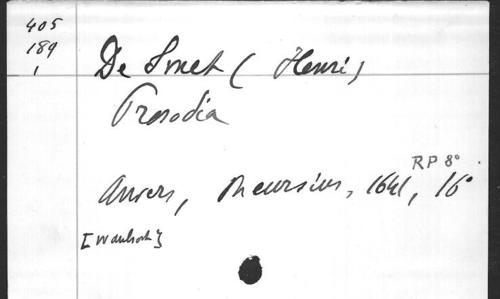 405
189
1
De Smet (Henri)
Prosodia
RP 8°
Anvers, Meursius, 1641, 16°